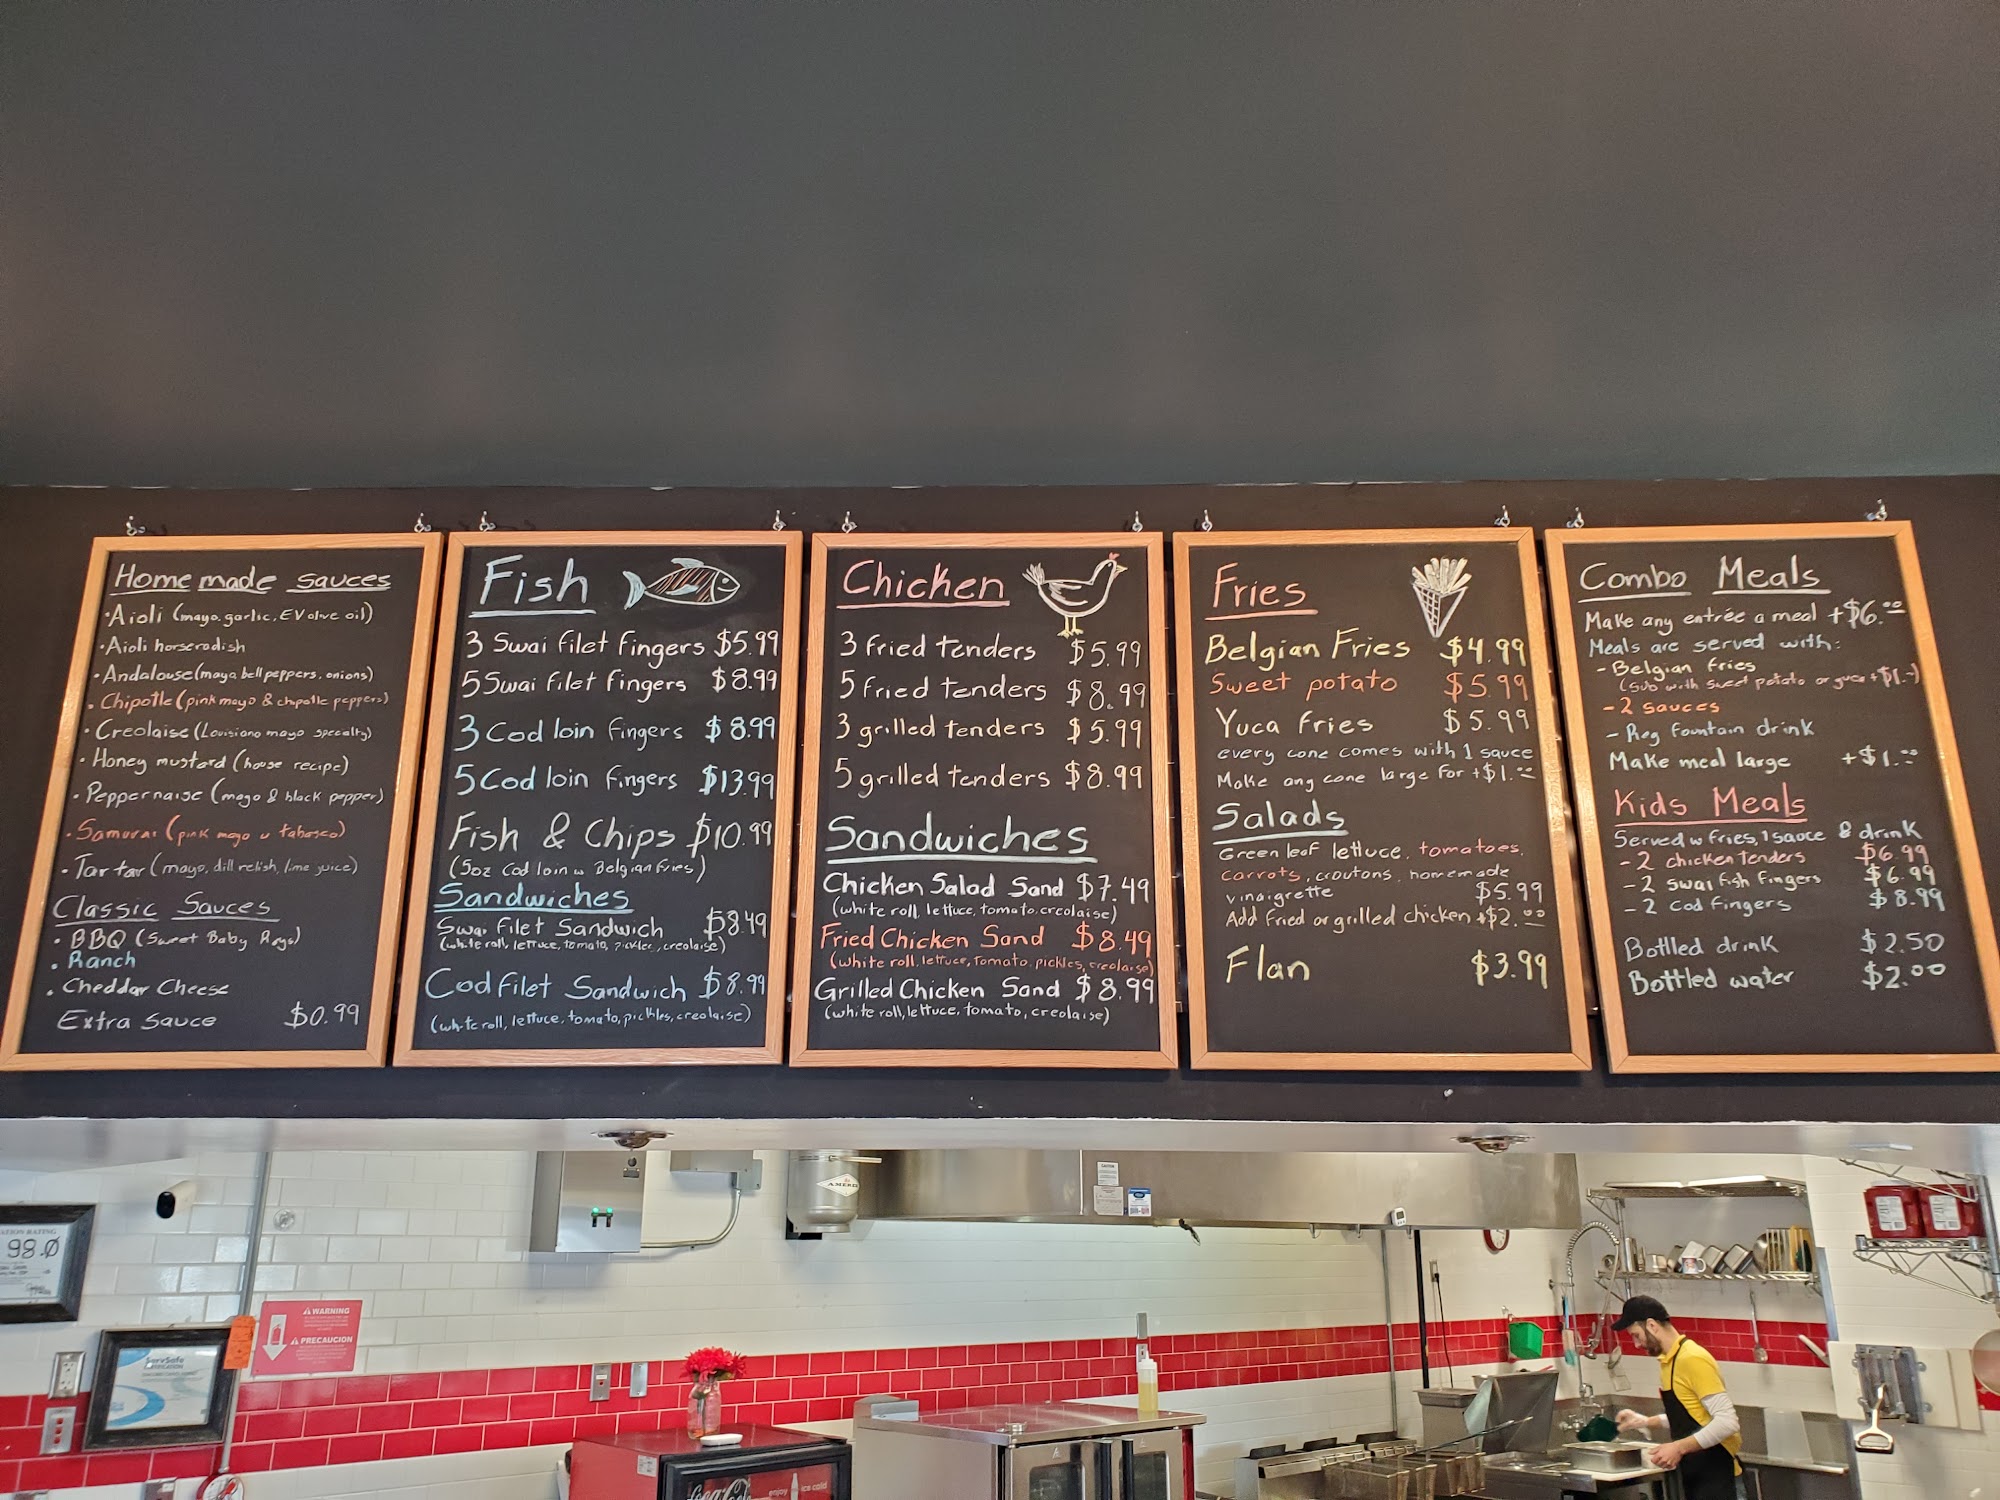 Home made sauces
• Aioli (mayo, garlic, EV olive oil)
• Aioli horseradish
• Andalouse (mayo, bell peppers, onions)
• Chipotle (pink mayo & chipotle peppers)
• Creolaise (Louisiano mayo specialty)
• Honey mustard (house recipe)
• Peppernaise (mayo & black pepper)
• Samurai (pink mayo w tabasco)
• Tartar (mayo, dill relish, lime juice)
Classic Sauces
• BBQ (Sweet Baby Rays)
• Ranch
• Cheddar Cheese
Extra sauce $0.99
Fish
3 Swai filet fingers $5.99
5 Swai filet fingers $8.99
3 Cod loin fingers $8.99
5 Cod loin fingers $13.99
Fish & Chips $10.99
(5oz Cod loin w Belgian fries)
Sandwiches
Swai filet Sandwich $8.49
(white roll, lettuce, tomato, pickles, creolaise)
Cod filet Sandwich $8.99
(white roll, lettuce, tomato, pickles, creolaise)
Chicken
3 fried tenders $5.99
5 fried tenders $8.99
3 grilled tenders $5.99
5 grilled tenders $8.99
Sandwiches
Chicken Salad Sand $7.49
(white roll, lettuce, tomato, creolaise)
Fried Chicken Sand $8.49
(white roll, lettuce, tomato, pickles, creolaise)
Grilled Chicken Sand $8.99
(white roll, lettuce, tomato, creolaise)
Fries
Belgian Fries $4.99
Sweet potato $5.99
Yuca fries $5.99
every cone comes with 1 sauce
Make any cone large for +$1.00
Salads
Green leaf lettuce, tomatoes,
carrots, croutons, homemade
vinaigrette $5.99
Add fried or grilled chicken +$2.00
Flan $3.99
Combo Meals
Make any entrée a meal +$6.00
Meals are served with:
- Belgian fries
(sub with sweet potato or yuca +$1.-)
- 2 sauces
- Reg fountain drink
Make meal large +$1.00
Kids Meals
Served w fries, 1 sauce & drink
- 2 chicken tenders $6.99
- 2 swai fish fingers $6.99
- 2 cod fingers $8.99
Bottled drink $2.50
Bottled water $2.00
98.0
ServSafe
WARNING
PRECAUCION
CAUTION
Coca-Cola
enjoy ice cold